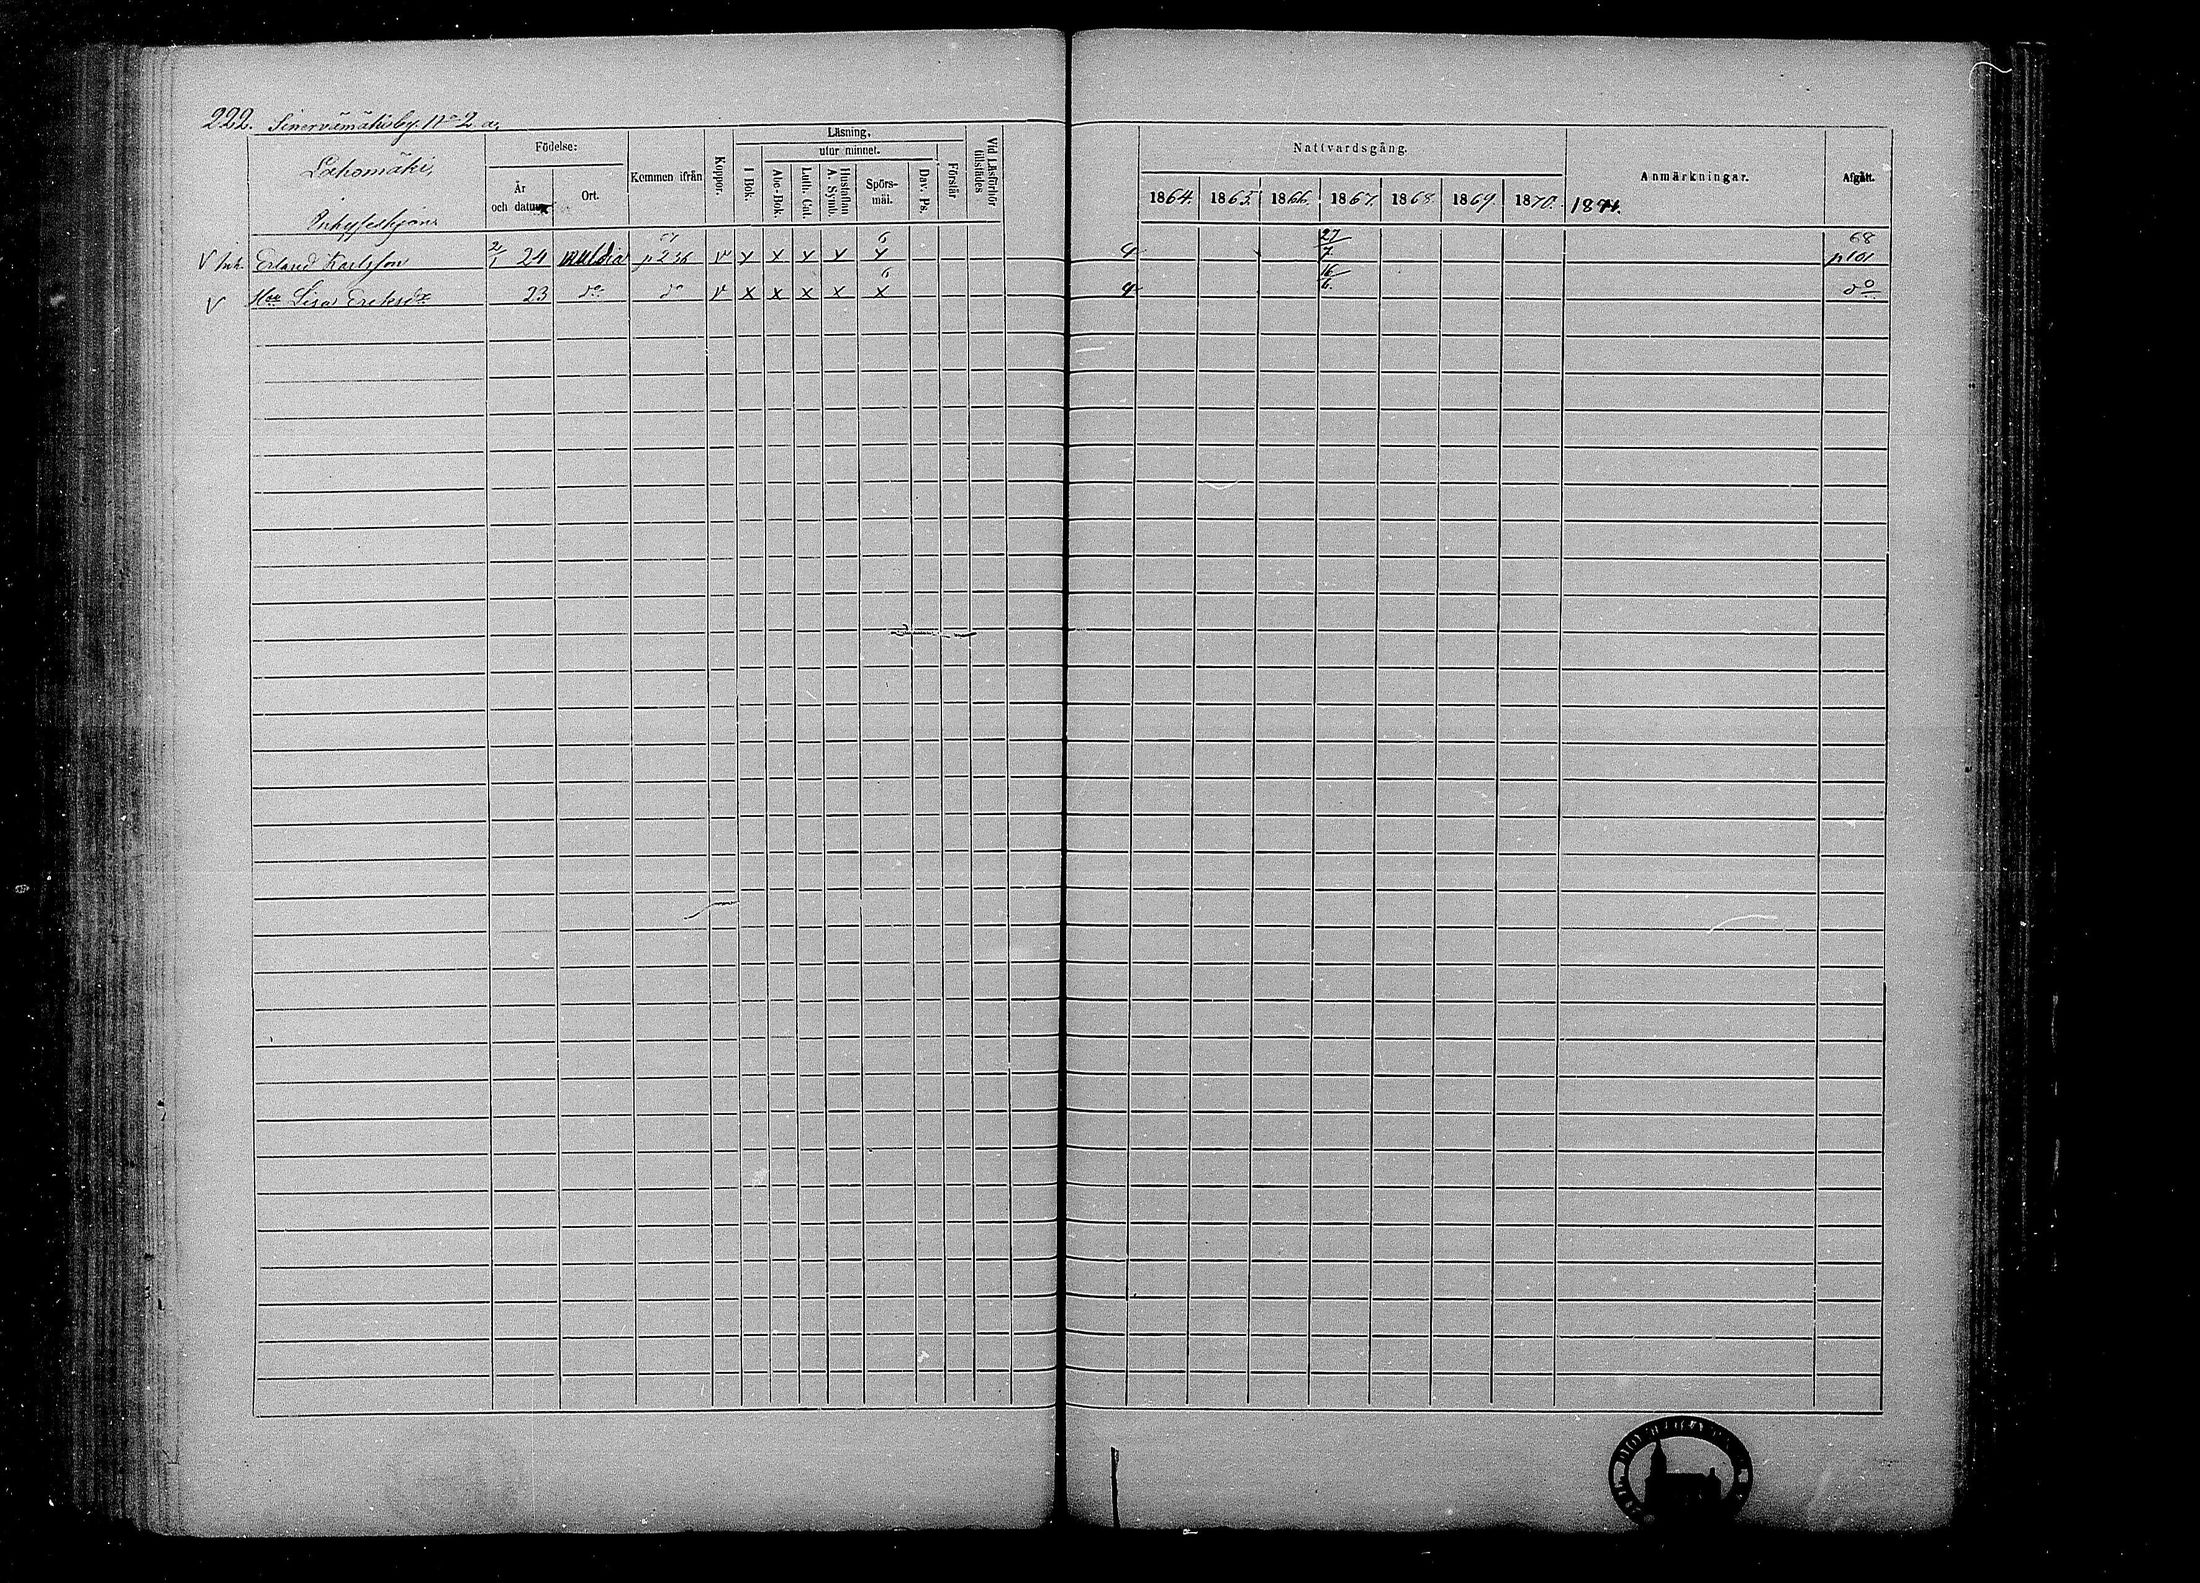 222. Sinervämäki by. No 2. a.
Lahomäki,
Inhyseshjon
Födelse:
År och datum
Ort.
Kommen ifrån
Koppor.
Läsning.
I Bok.
utur minnet.
Abc-Bok.
Luth. Cat.
Hustaflan A. Symb.
Spörsmål.
Dav. Ps.
Förstår
Vid Läsförhör tillstädes
Nattvardsgång.
1864. 1865. 1866. 1867. 1868. 1869. 1870. 1871.
Anmärkningar.
Afgått.
V Inh. Erland Karlsson 2/1 24 Muldia p 236 v x x x x 6 x 4 27/7. 68 p 101
V Hu Lisa Eriksdr 23 do do v x x x x 6 x 4 16/6. do